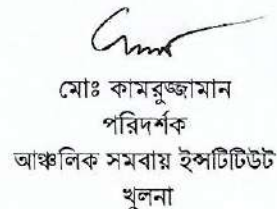 মোঃ কামরুজ্জামান
পরিদর্শক
আঞ্চলিক সমবায় ইন্সটিটিউট
খুলনা